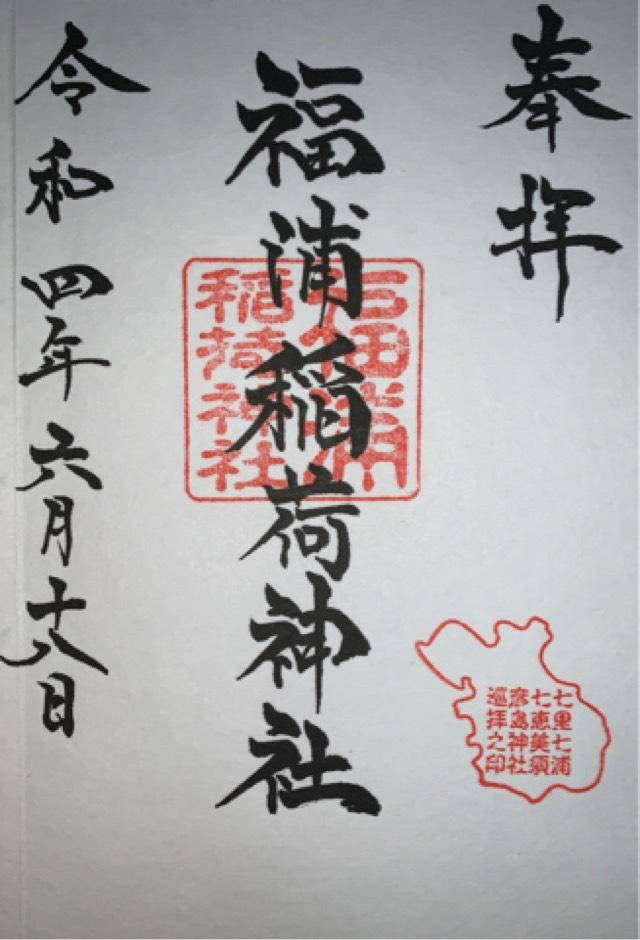 奉拝
福浦稲荷神社
令和四年六月十八日
福浦
稲荷神社
七里七浦
七恵美須
彦島神社
巡拝之印